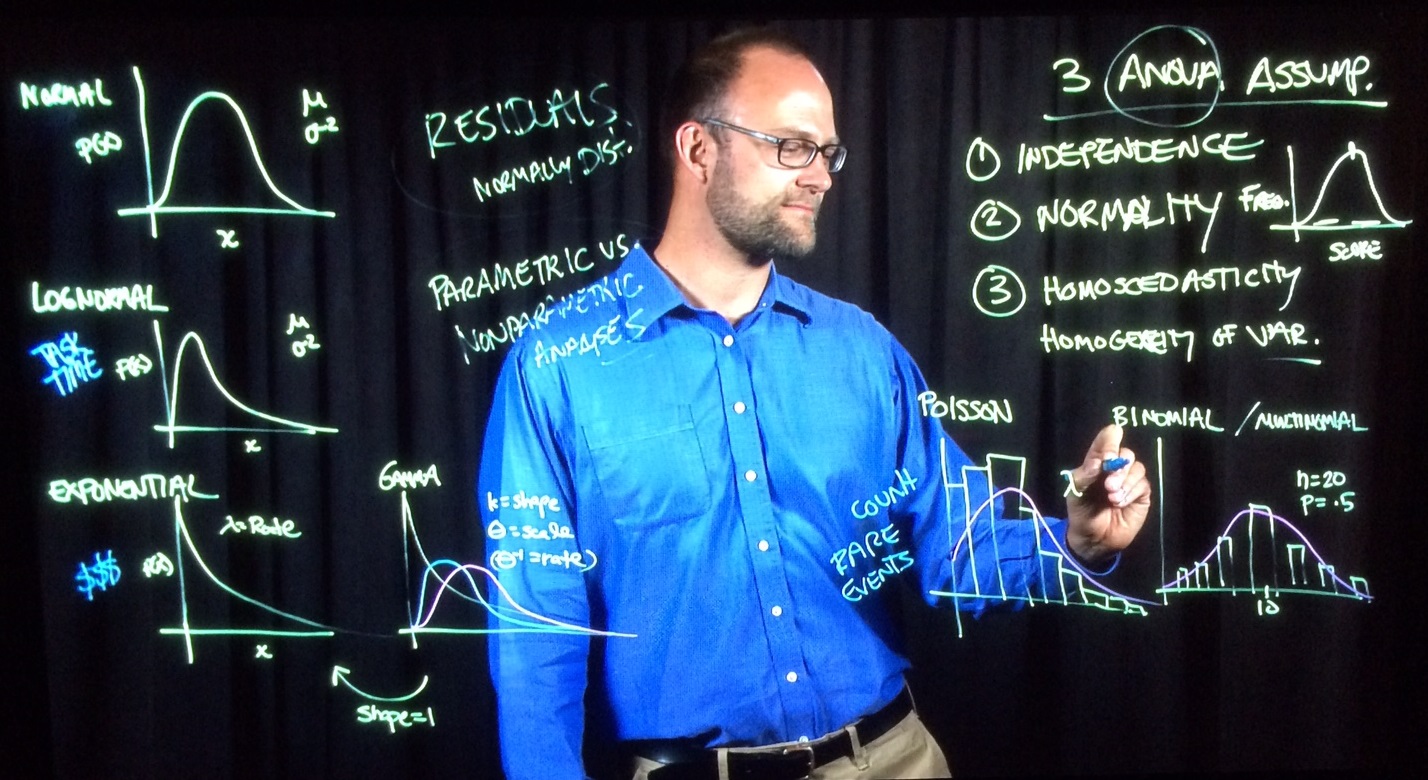 NORMAL
P(x)
μ
σ²
x
LOGNORMAL
TASK
TIME
P(x)
μ
σ²
x
EXPONENTIAL
λ=Rate
$$$
P(x)
x
GAMMA
k=shape
θ=scale
(θ⁻¹=rate)
Shape=1
RESIDUALS.
NORMALLY DIST.
PARAMETRIC VS.
NONPARAMETRIC
ANALYSES
3 ANOVA ASSUMP.
① INDEPENDENCE
② NORMALITY
FREQ.
SCORE
③ HOMOSCEDASTICITY
HOMOGENEITY OF VAR.
POISSON
λ
COUNT
RARE
EVENTS
BINOMIAL / MULTINOMIAL
n=20
P=.5
10